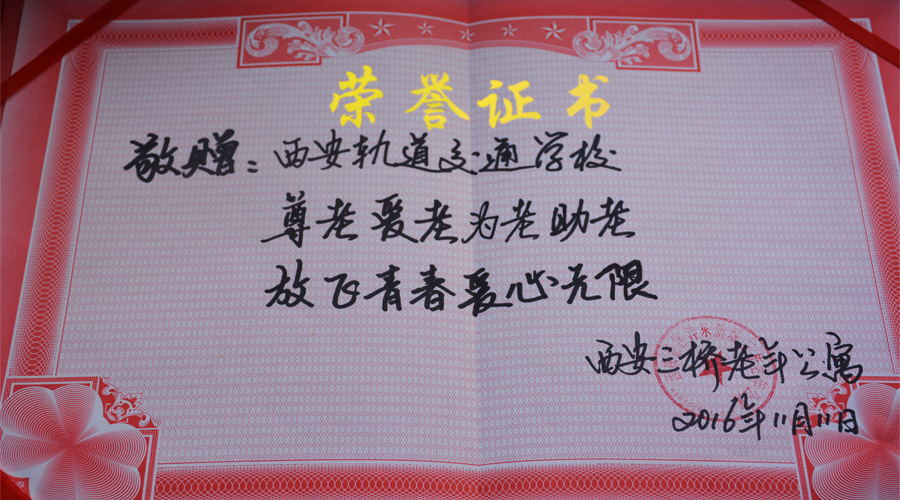 荣誉证书
敬赠：西安轨道交通学校
尊老爱老为老助老
放飞青春爱心无限
西安三桥老年公寓
2016年11月11日